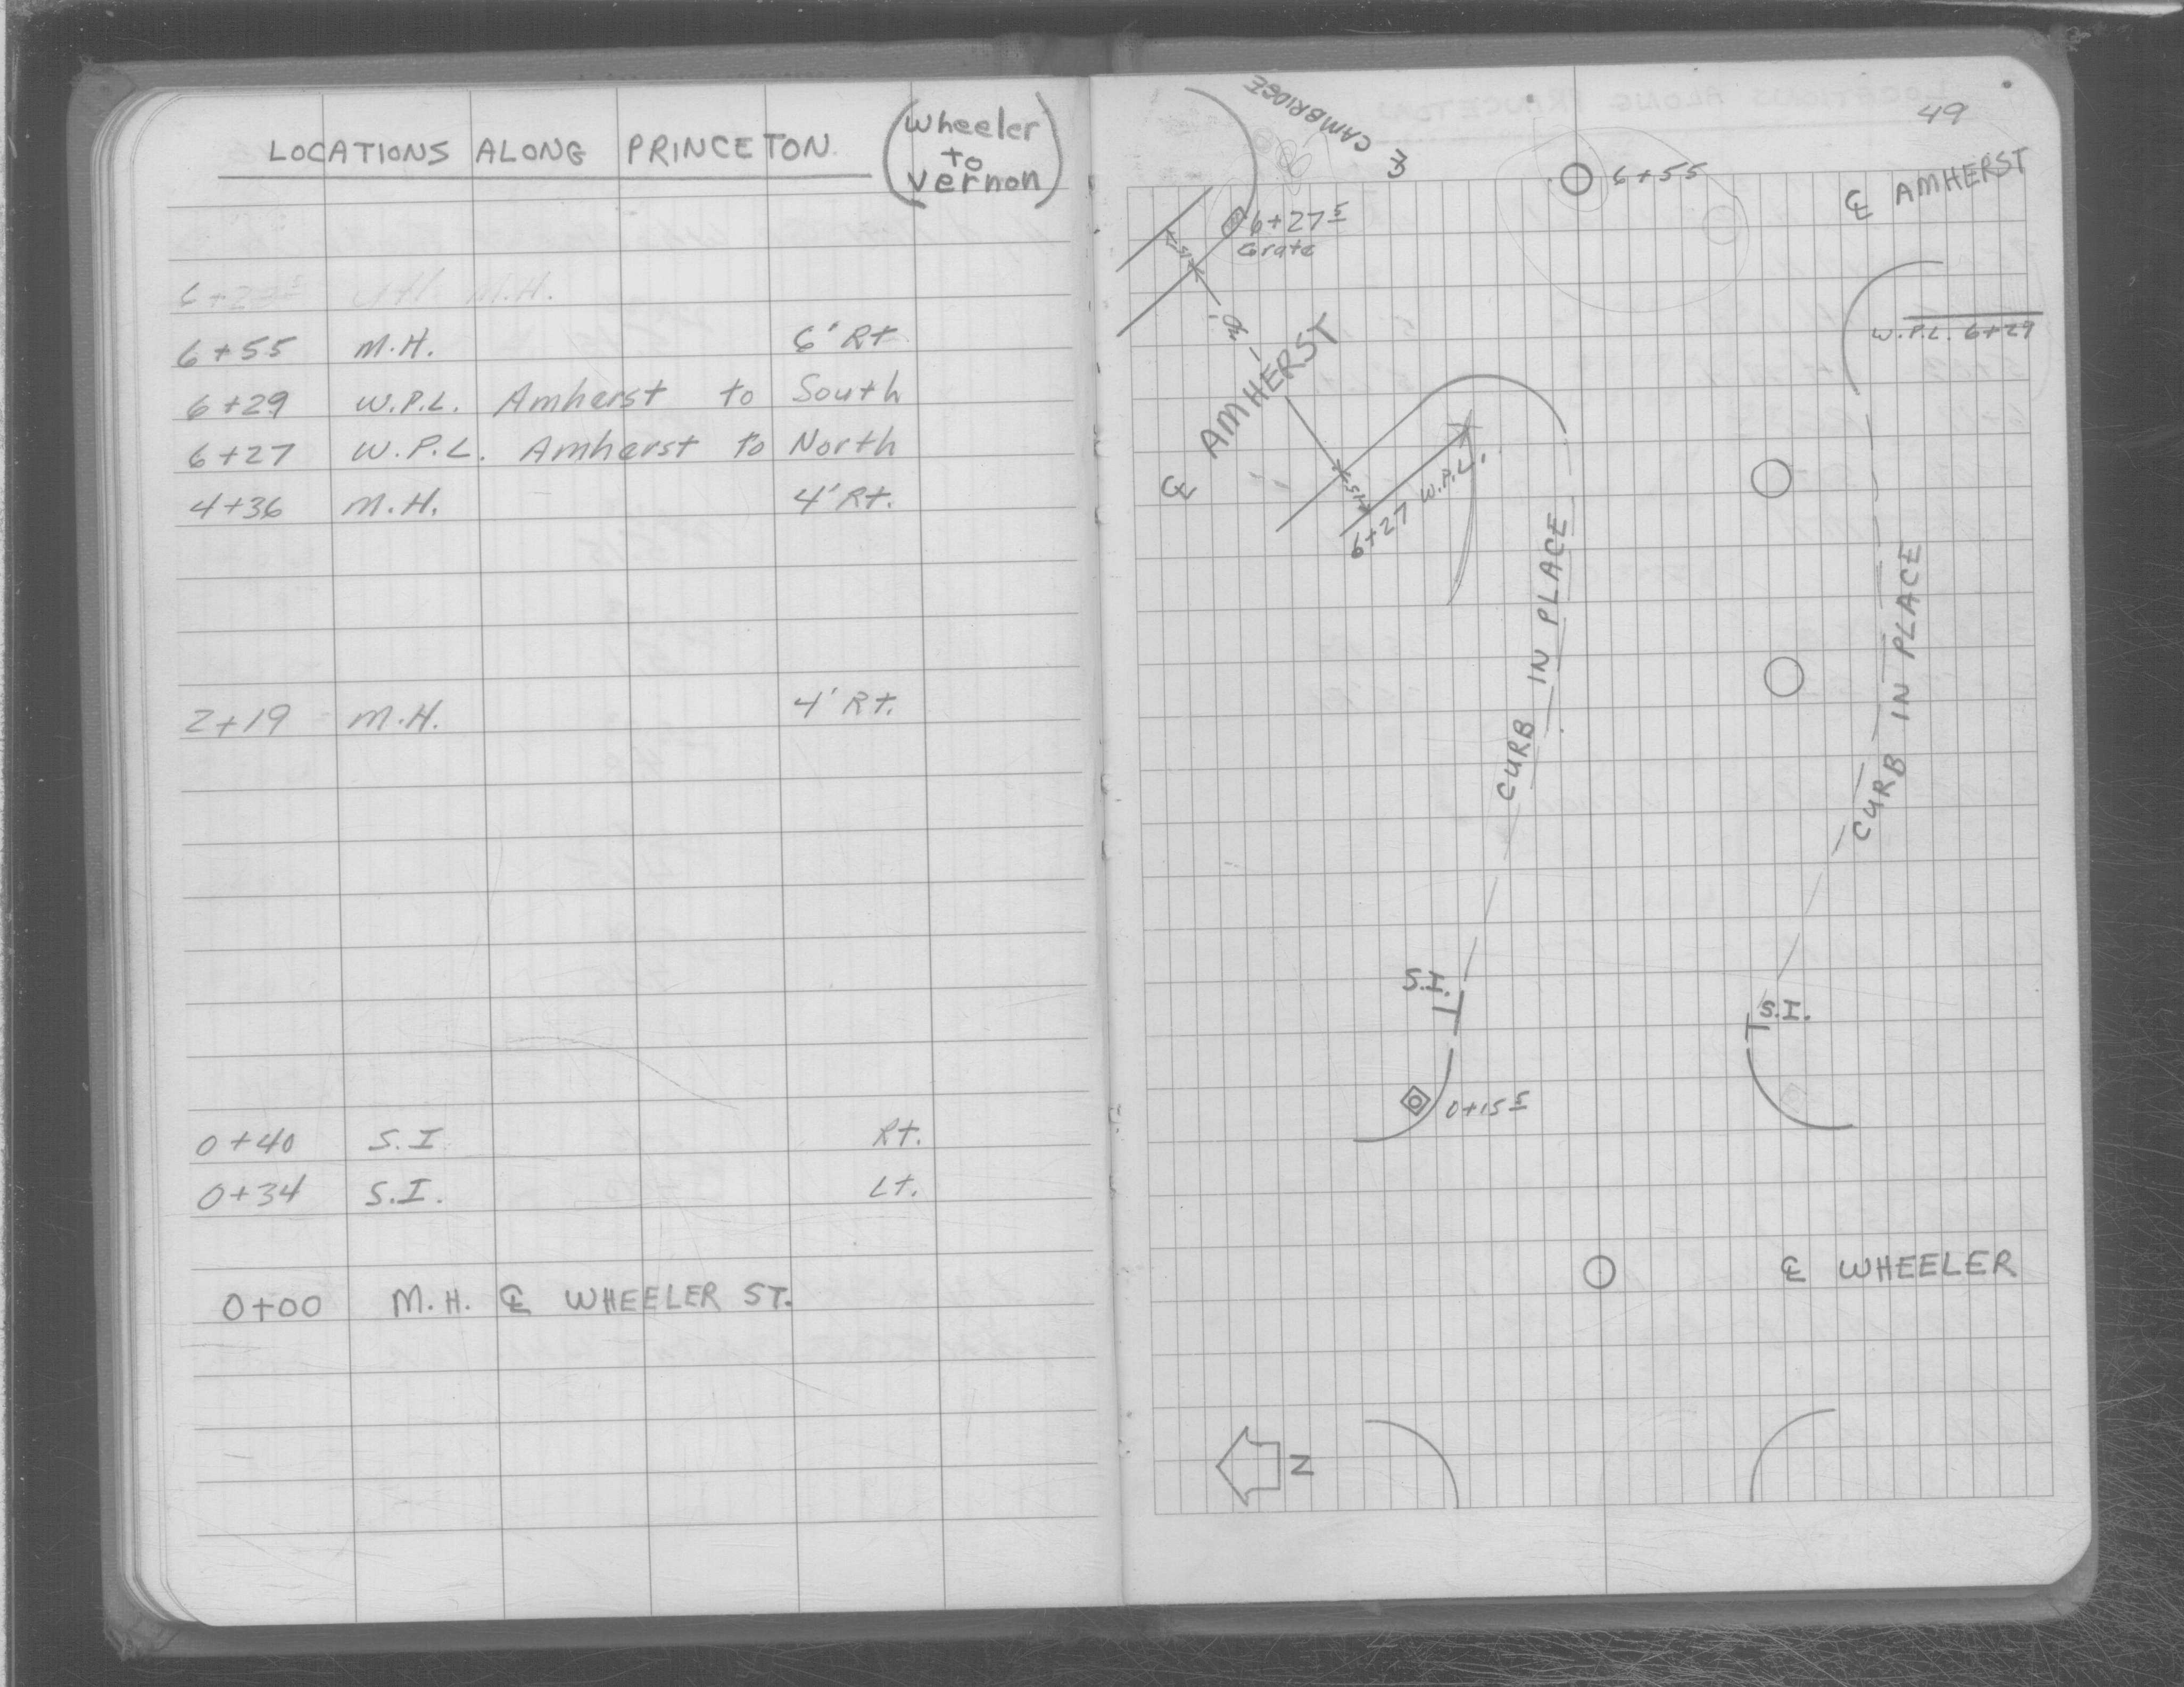 LOCATIONS ALONG PRINCETON (Wheeler to Vernon)
M.H.
6+55 M.H. 6' Rt
6+29 W.P.L. Amherst to South
6+27 W.P.L. Amherst to North
4+36 M.H. 4' Rt.
2+19 M.H. 4' Rt.
0+40 S.I Rt.
0+34 S.I. Lt.
0+00 M.H. ℄ WHEELER ST.
49
℄ CAMBRIDGE
6+55
℄ AMHERST
6+27 5
Grate
W.P.L. 6+29
℄ AMHERST
6+27 W.P.L.
CURB IN PLACE
CURB IN PLACE
S.I.
S.I.
0+15 5
℄ WHEELER
N